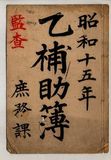 昭和十五年
乙補助簿
庶務課
監査